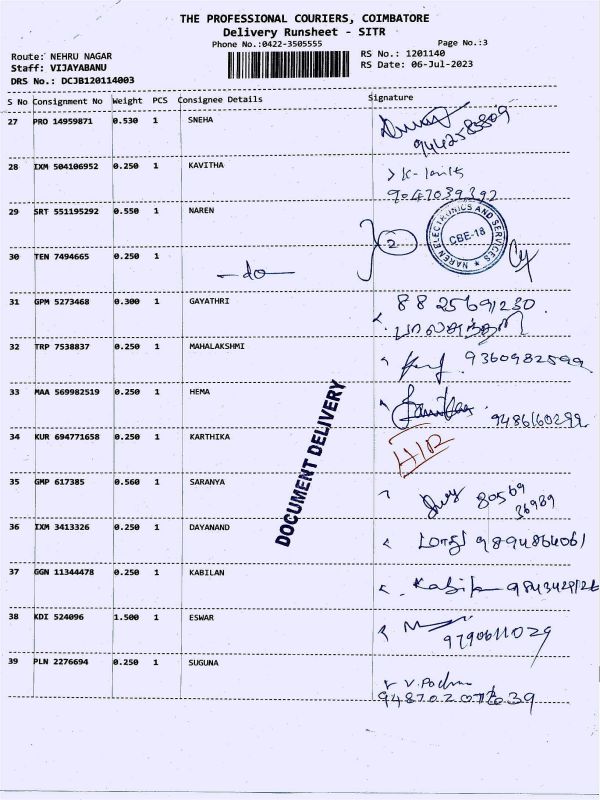 THE PROFESSIONAL COURIERS, COIMBATORE
Delivery Runsheet - SITR
Phone No.:0422-3505555 Page No.:3
Route: NEHRU NAGAR RS No.: 1201140
Staff: VIJAYABANU RS Date: 06-Jul-2023
DRS No.: DCJB120114003
S No Consignment No Weight PCS Consignee Details Signature
27 PRO 14959871 0.530 1 SNEHA
28 IXM 504106952 0.250 1 KAVITHA
9047039392
29 SRT 551195292 0.550 1 NAREN
2 NAREN ELECTRONICS AND SERVICES ★ CBE-18
30 TEN 7494665 0.250 1 -do-
31 GPM 5273468 0.300 1 GAYATHRI
8825691230
32 TRP 7538837 0.250 1 MAHALAKSHMI
9360982599
33 MAA 569982519 0.250 1 HEMA
9486160299
34 KUR 694771658 0.250 1 KARTHIKA
DOCUMENT DELIVERY
35 GMP 617385 0.560 1 SARANYA
80569
36989
36 IXM 3413326 0.250 1 DAYANAND
9894864061
37 GGN 11344478 0.250 1 KABILAN
38 KDI 524096 1.500 1 ESWAR
9790611029
39 PLN 2276694 0.250 1 SUGUNA